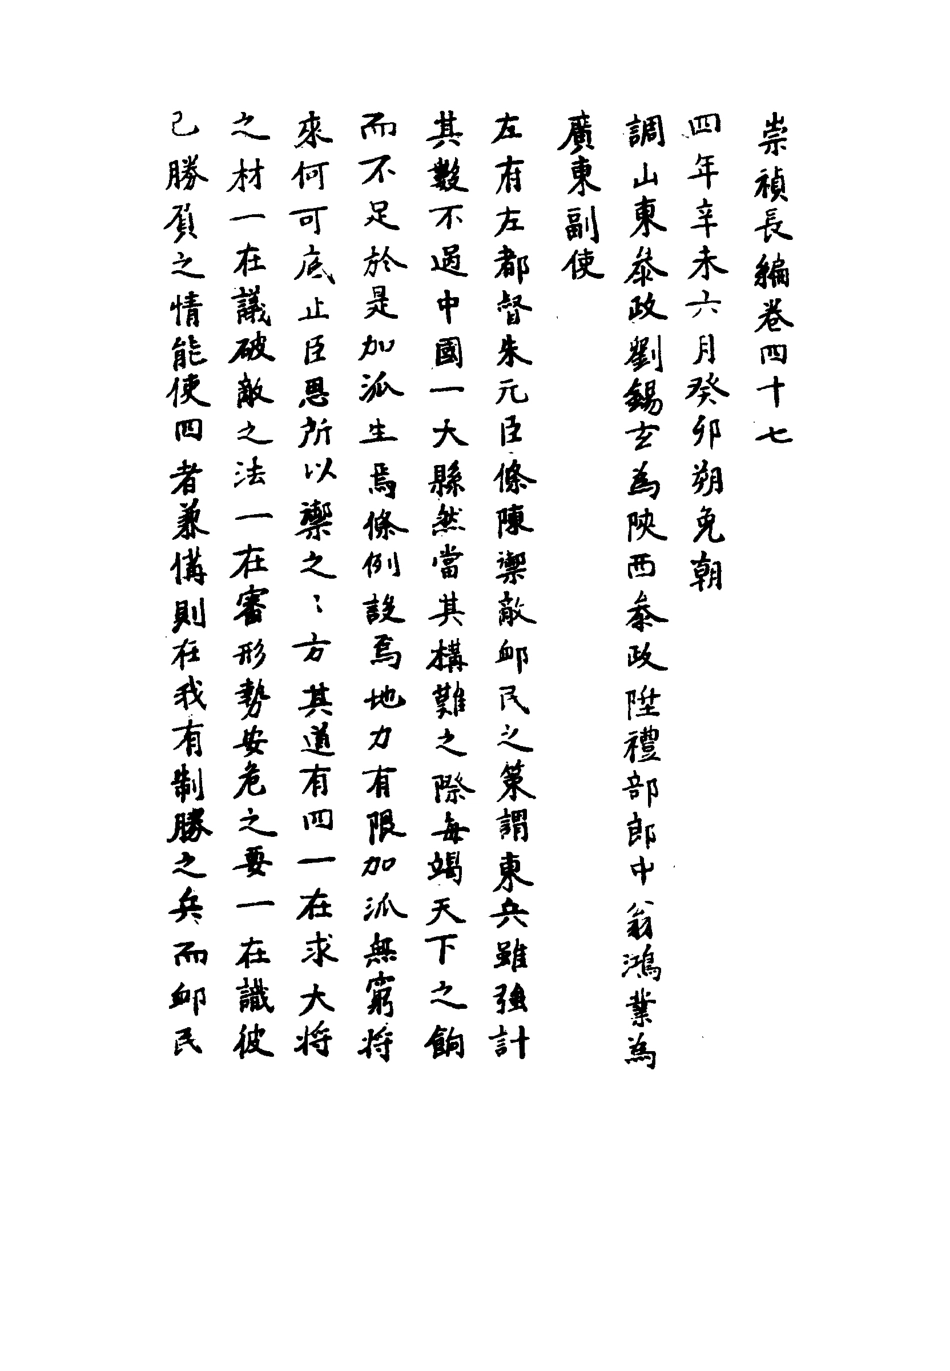 崇禎長編卷四十七
四年辛未六月癸卯朔免朝
調山東叅政劉錫玄為陝西叅政陞禮部郎中翁鴻業為
廣東副使
左府左都督朱元臣條陳禦敵卹民之策謂東兵雖強計
其數不過中國一大縣然當其構難之際每竭天下之餉
而不足於是加派生焉條例設焉地力有限加派無窮將
來何可底止臣思所以禦之〻方其道有四一在求大將
之材一在議破敵之法一在審形勢安危之要一在識彼
己勝負之情能使四者兼備則在我有制勝之兵而卹民